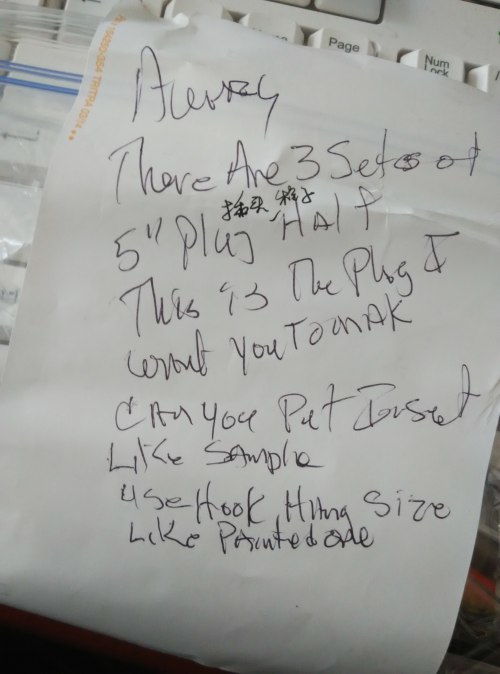 Page
Num
Lock
There Are 3 Sets of
5" Plug 插头 Half
This is The Plug I
want you To mAK
CAn you Put Insert
Like Sample
use Hook Hang Size
Like Painted one